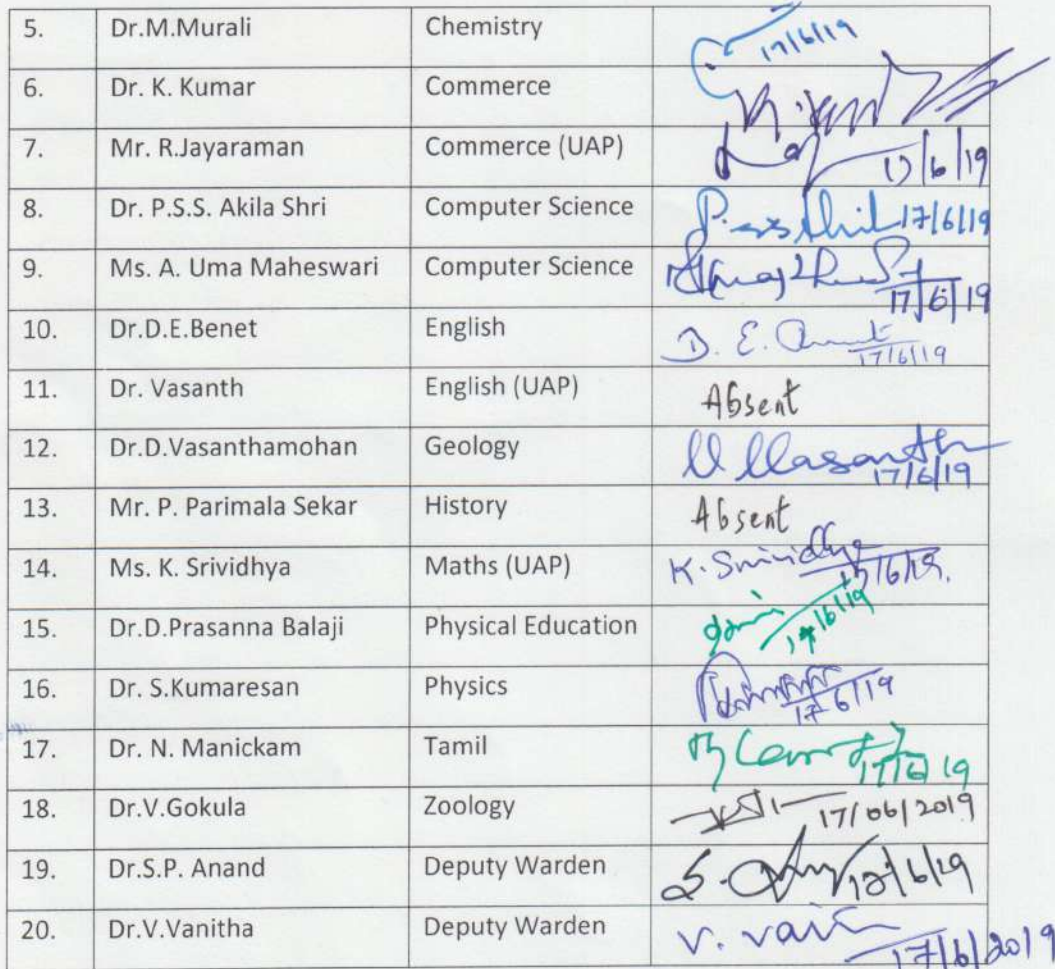 5. Dr.M.Murali Chemistry 17/6/19
6. Dr. K. Kumar Commerce
7. Mr. R.Jayaraman Commerce (UAP) 17/6/19
8. Dr. P.S.S. Akila Shri Computer Science 17/6/19
9. Ms. A. Uma Maheswari Computer Science 17/6/19
10. Dr.D.E.Benet English D. E. 17/6/19
11. Dr. Vasanth English (UAP) Absent
12. Dr.D.Vasanthamohan Geology 17/6/19
13. Mr. P. Parimala Sekar History Absent
14. Ms. K. Srividhya Maths (UAP) K. Srividhya 17/6/19.
15. Dr.D.Prasanna Balaji Physical Education 17/6/19
16. Dr. S.Kumaresan Physics 17/6/19
17. Dr. N. Manickam Tamil 17/6/19
18. Dr.V.Gokula Zoology 17/06/2019
19. Dr.S.P. Anand Deputy Warden 17/6/19
20. Dr.V.Vanitha Deputy Warden 17/6/2019